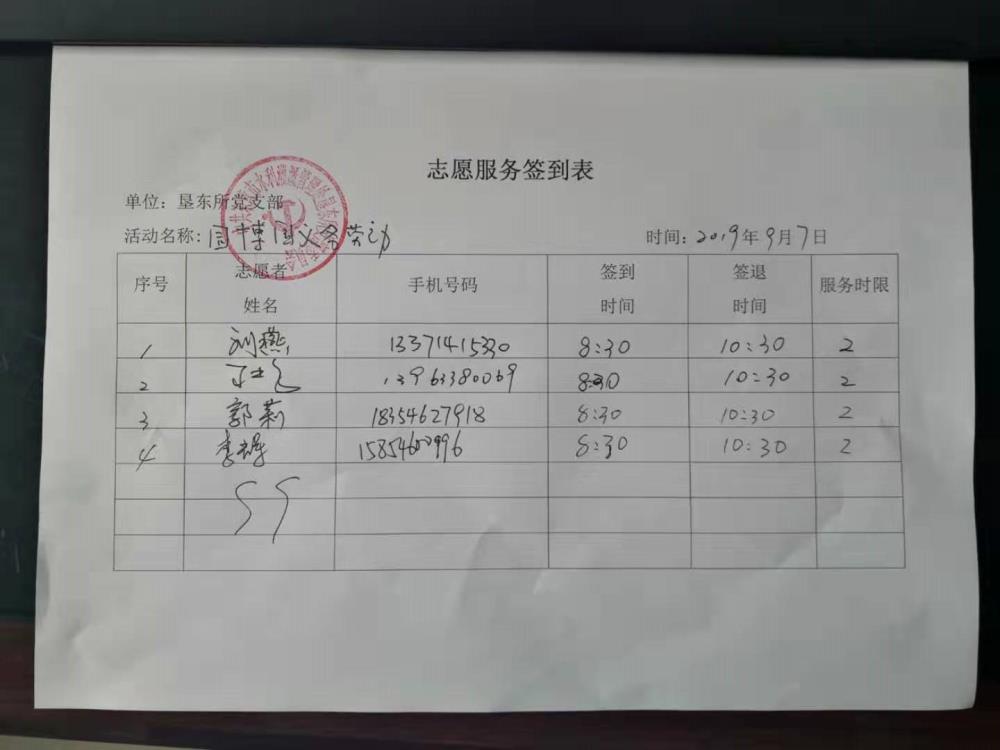 志愿服务签到表
单位：垦东所党支部
活动名称：园博园义务劳动 时间：2019年9月7日
序号 志愿者姓名 手机号码 签到时间 签退时间 服务时限
1 刘燕 13371415330 8:30 10:30 2
2 13963380069 8:30 10:30 2
3 郭莉 18354627918 8:30 10:30 2
4 8:30 10:30 2